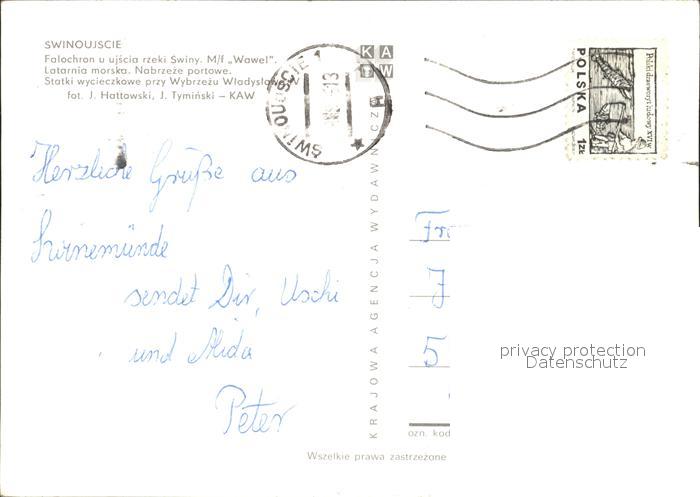 SWINOUJSCIE
Falochron u ujścia rzeki Świny. M/f „Wawel".
Latarnia morska. Nabrzeże portowe.
Statki wycieczkowe przy Wybrzeżu Władysława IV
fot. J. Hattowski, J. Tymiński – KAW
KAW
ŚWINOUJŚCIE 1
POLSKA
1 ZŁ
Polski drzeworyt ludowy XVI w.
Herzliche Grüße aus
Swinemünde
sendet Dir, Uschi
und Alida
Peter
KRAJOWA AGENCJA WYDAWNICZA
Fr
J
5
privacy protection
Datenschutz
ozn. kod
Wszelkie prawa zastrzeżone